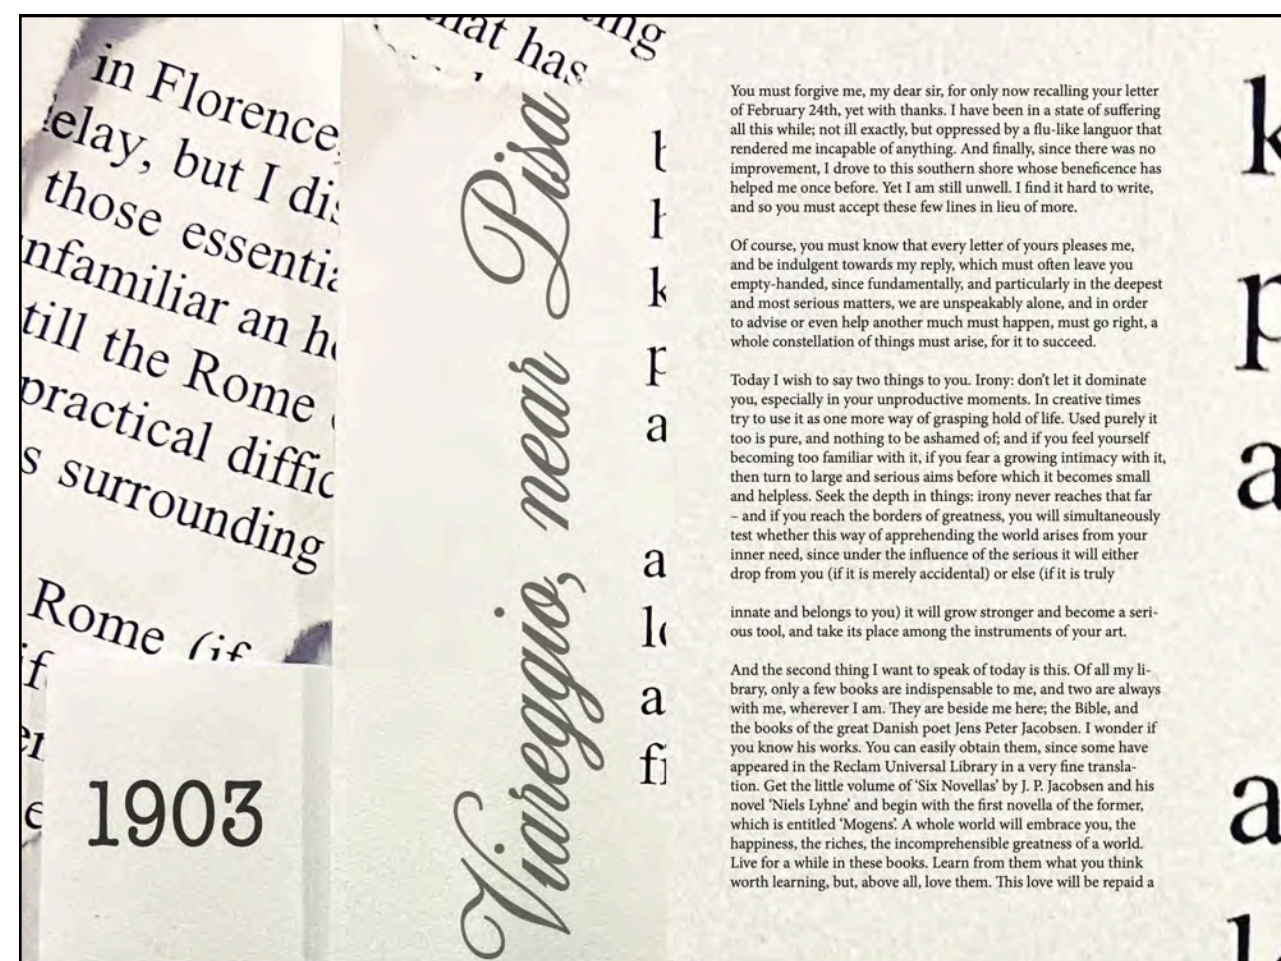 in Florence,
elay, but I
those
till the Rome
practical
surrounding
Rome (if
1903
that has
Viareggio, near Pisa
You must forgive me, my dear sir, for only now recalling your letter
of February 24th, yet with thanks. I have been in a state of suffering
all this while; not ill exactly, but oppressed by a flu-like languor that
rendered me incapable of anything. And finally, since there was no
improvement, I drove to this southern shore whose beneficence has
helped me once before. Yet I am still unwell. I find it hard to write,
and so you must accept these few lines in lieu of more.
Of course, you must know that every letter of yours pleases me,
and be indulgent towards my reply, which must often leave you
empty-handed, since fundamentally, and particularly in the deepest
and most serious matters, we are unspeakably alone, and in order
to advise or even help another much must happen, must go right, a
whole constellation of things must arise, for it to succeed.
Today I wish to say two things to you. Irony: don't let it dominate
you, especially in your unproductive moments. In creative times
try to use it as one more way of grasping hold of life. Used purely it
too is pure, and nothing to be ashamed of; and if you feel yourself
becoming too familiar with it, if you fear a growing intimacy with it,
then turn to large and serious aims before which it becomes small
and helpless. Seek the depth in things: irony never reaches that far
– and if you reach the borders of greatness, you will simultaneously
test whether this way of apprehending the world arises from your
inner need, since under the influence of the serious it will either
drop from you (if it is merely accidental) or else (if it is truly
innate and belongs to you) it will grow stronger and become a seri-
ous tool, and take its place among the instruments of your art.
And the second thing I want to speak of today is this. Of all my li-
brary, only a few books are indispensable to me, and two are always
with me, wherever I am. They are beside me here; the Bible, and
the books of the great Danish poet Jens Peter Jacobsen. I wonder if
you know his works. You can easily obtain them, since some have
appeared in the Reclam Universal Library in a very fine transla-
tion. Get the little volume of ‘Six Novellas’ by J. P. Jacobsen and his
novel ‘Niels Lyhne’ and begin with the first novella of the former,
which is entitled ‘Mogens’. A whole world will embrace you, the
happiness, the riches, the incomprehensible greatness of a world.
Live for a while in these books. Learn from them what you think
worth learning, but, above all, love them. This love will be repaid a